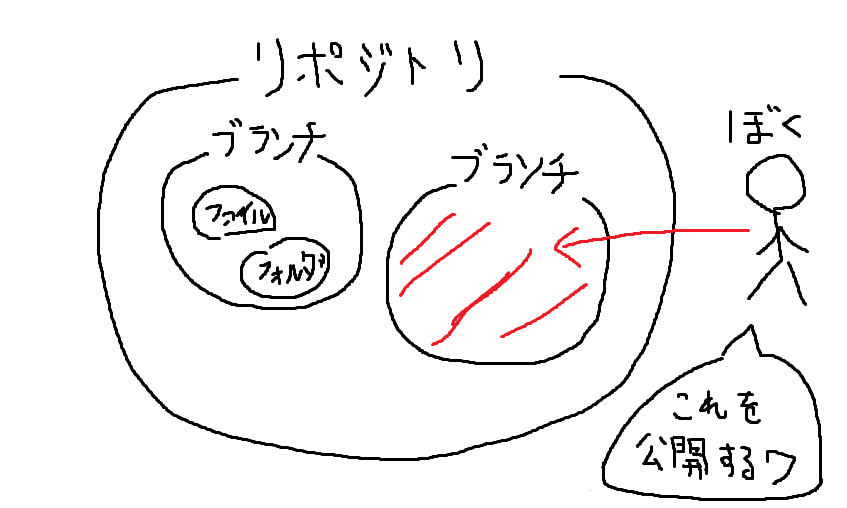 リポジトリ
ブランチ
ファイル
フォルダ
ブランチ
ぼく
これを
公開するワ